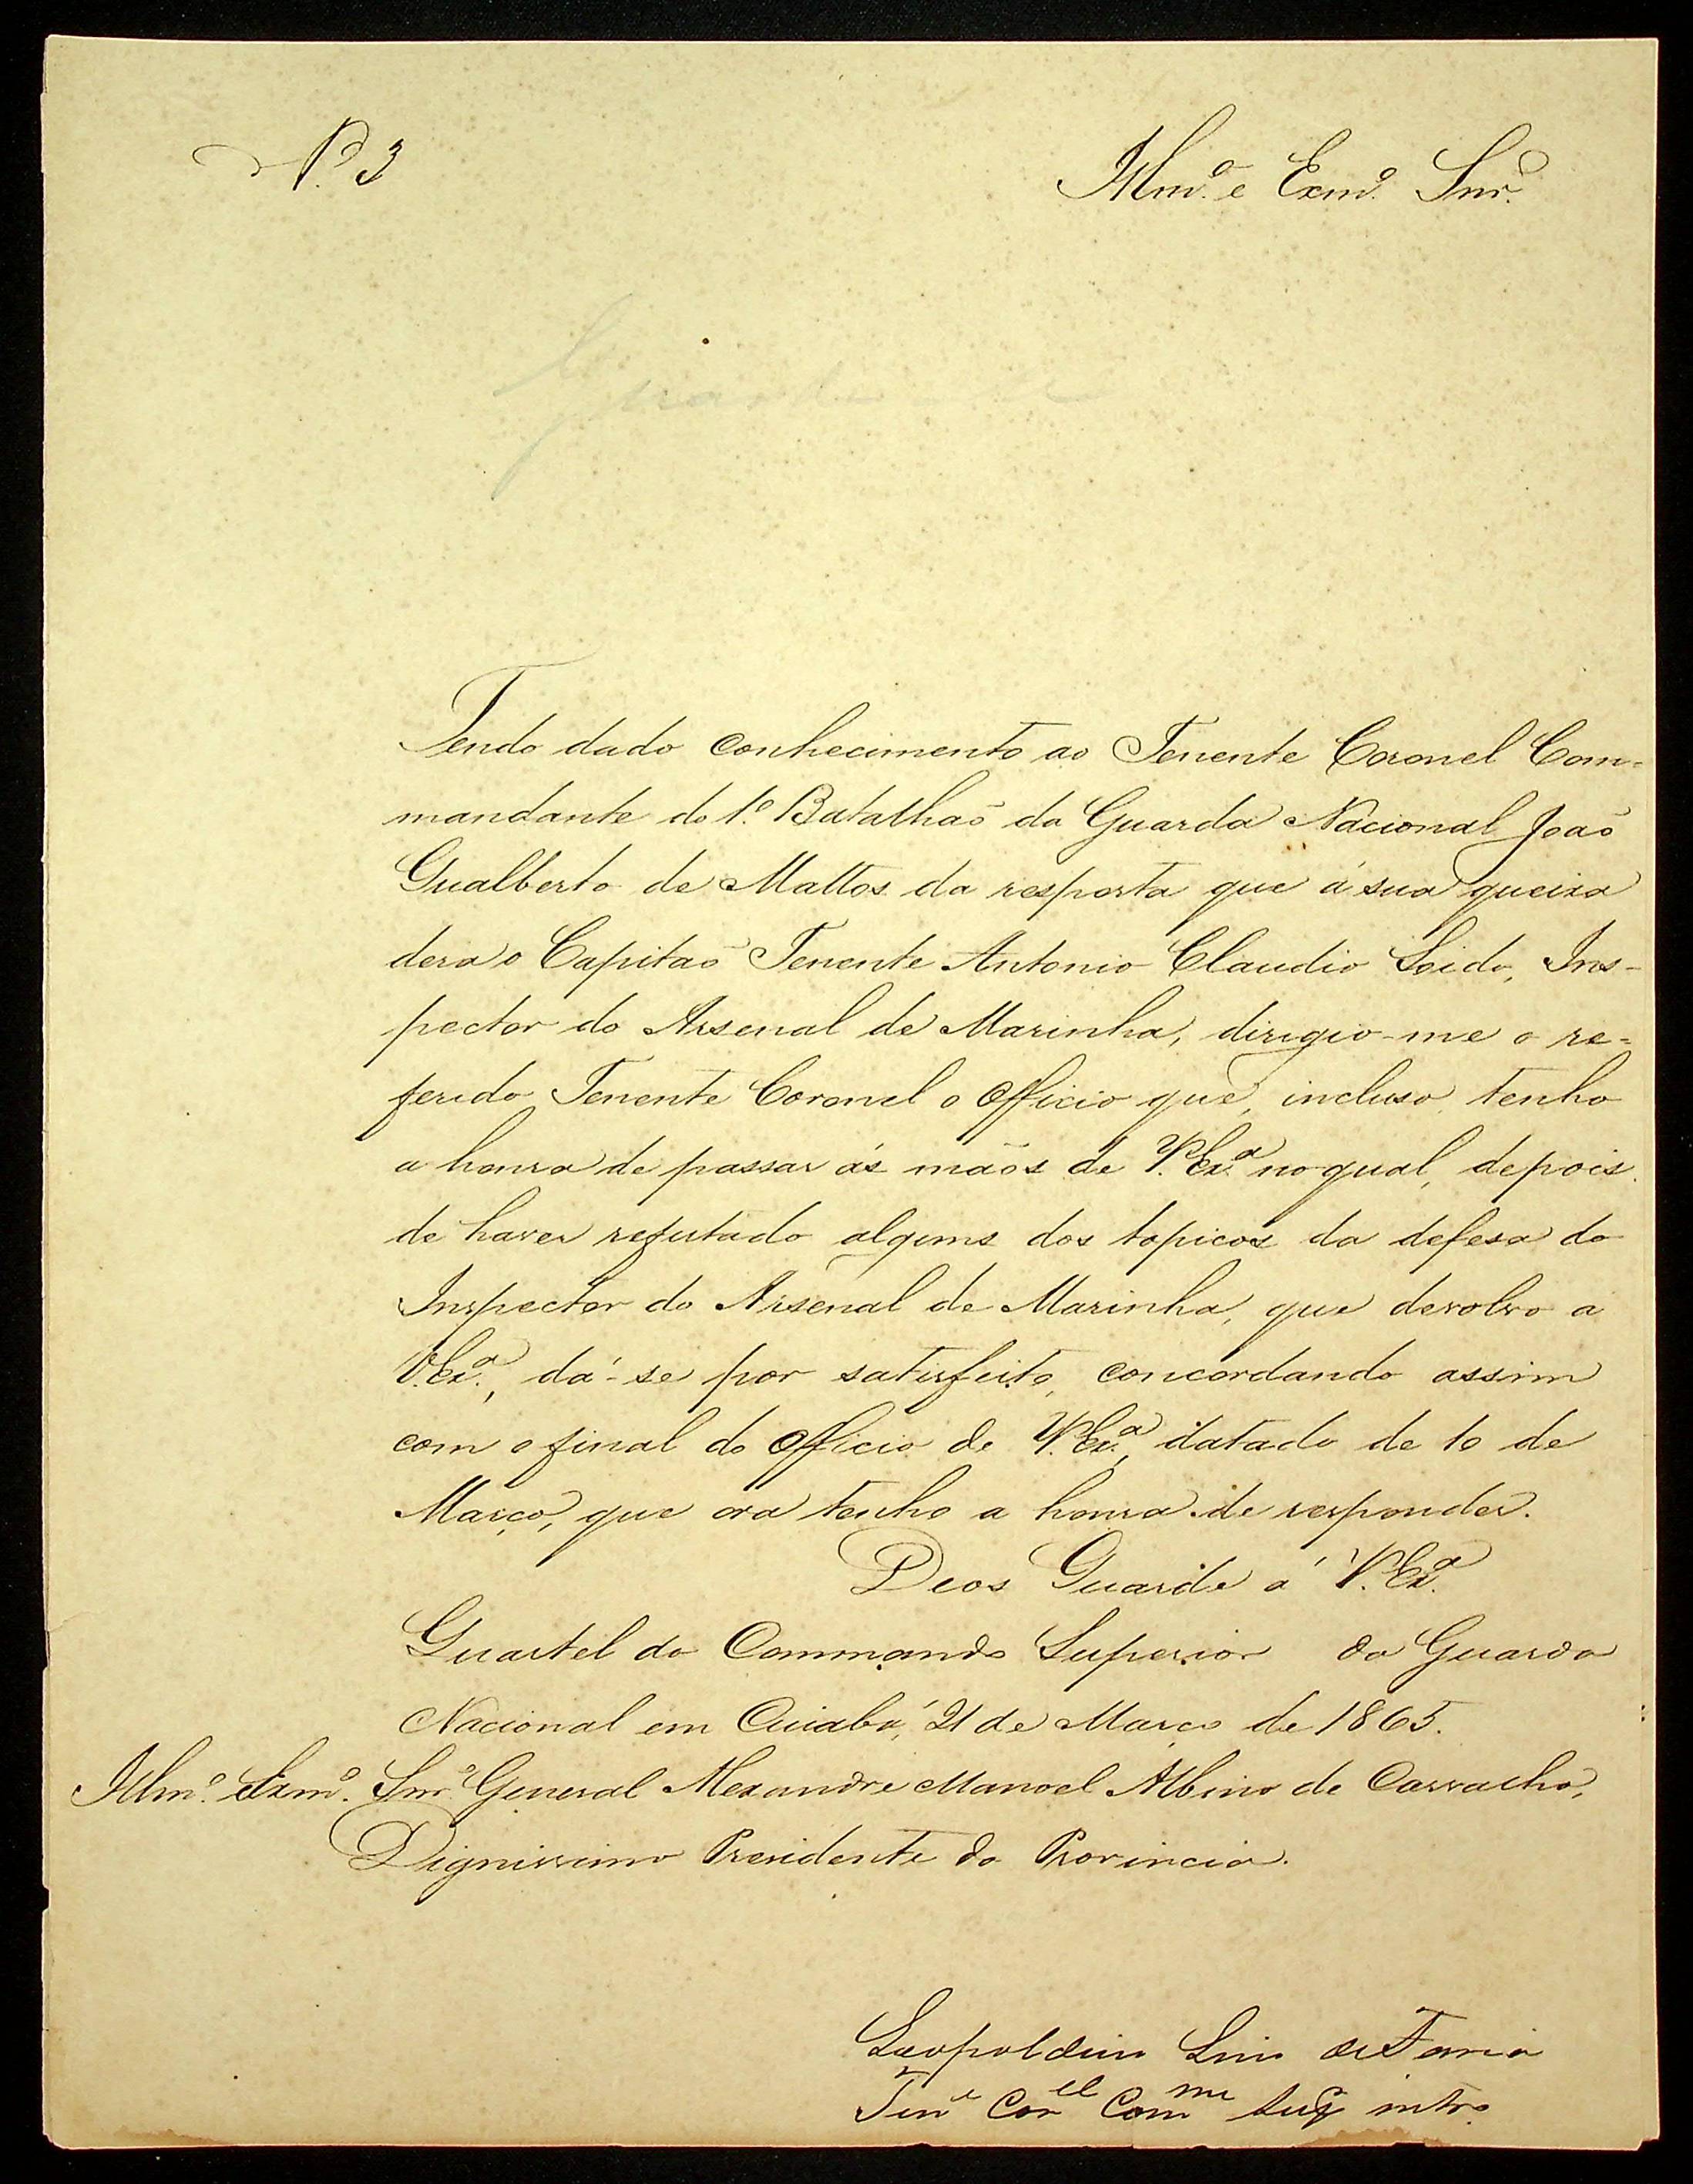 N. 3
Illmº. e Exmº. Snr.
Tendo dado conhecimento ao Tenente Coronel Com-
mandante do 1º. Batalhaõ da Guarda Nacional Joaõ
Gualberto de Mattos da resposta que á sua queixa
dera o Capitaõ Tenente Antonio Claudio Soido, Ins-
pector do Arsenal de Marinha, dirigio-me o re-
ferido Tenente Coronel o Officio que, incluso, tenho
a honra de passar ás maõs de V. Exª. no qual, depois
de haver refutado alguns dos topicos da defesa do
Inspector do Arsenal de Marinha, que devolvo a
V. Exª., dá-se por satisfeito, concordando assim
com o final do Officio de V. Exª., datado de 10 de
Março, que ora tenho a honra de responder.
Deos Guarde a V. Exª.
Quartel do Commando Superior da Guarda
Nacional em Cuiabá, 21 de Março de 1865.
Illmº. Exmº. Snr. General Alexandre Manoel Albino de Carvalho,
Dignissimo Presidente da Provincia.
Leopoldino Lino de Faria
Tenᵉ Corᵉˡ Comᵐᵉ Supᵒʳ intrº